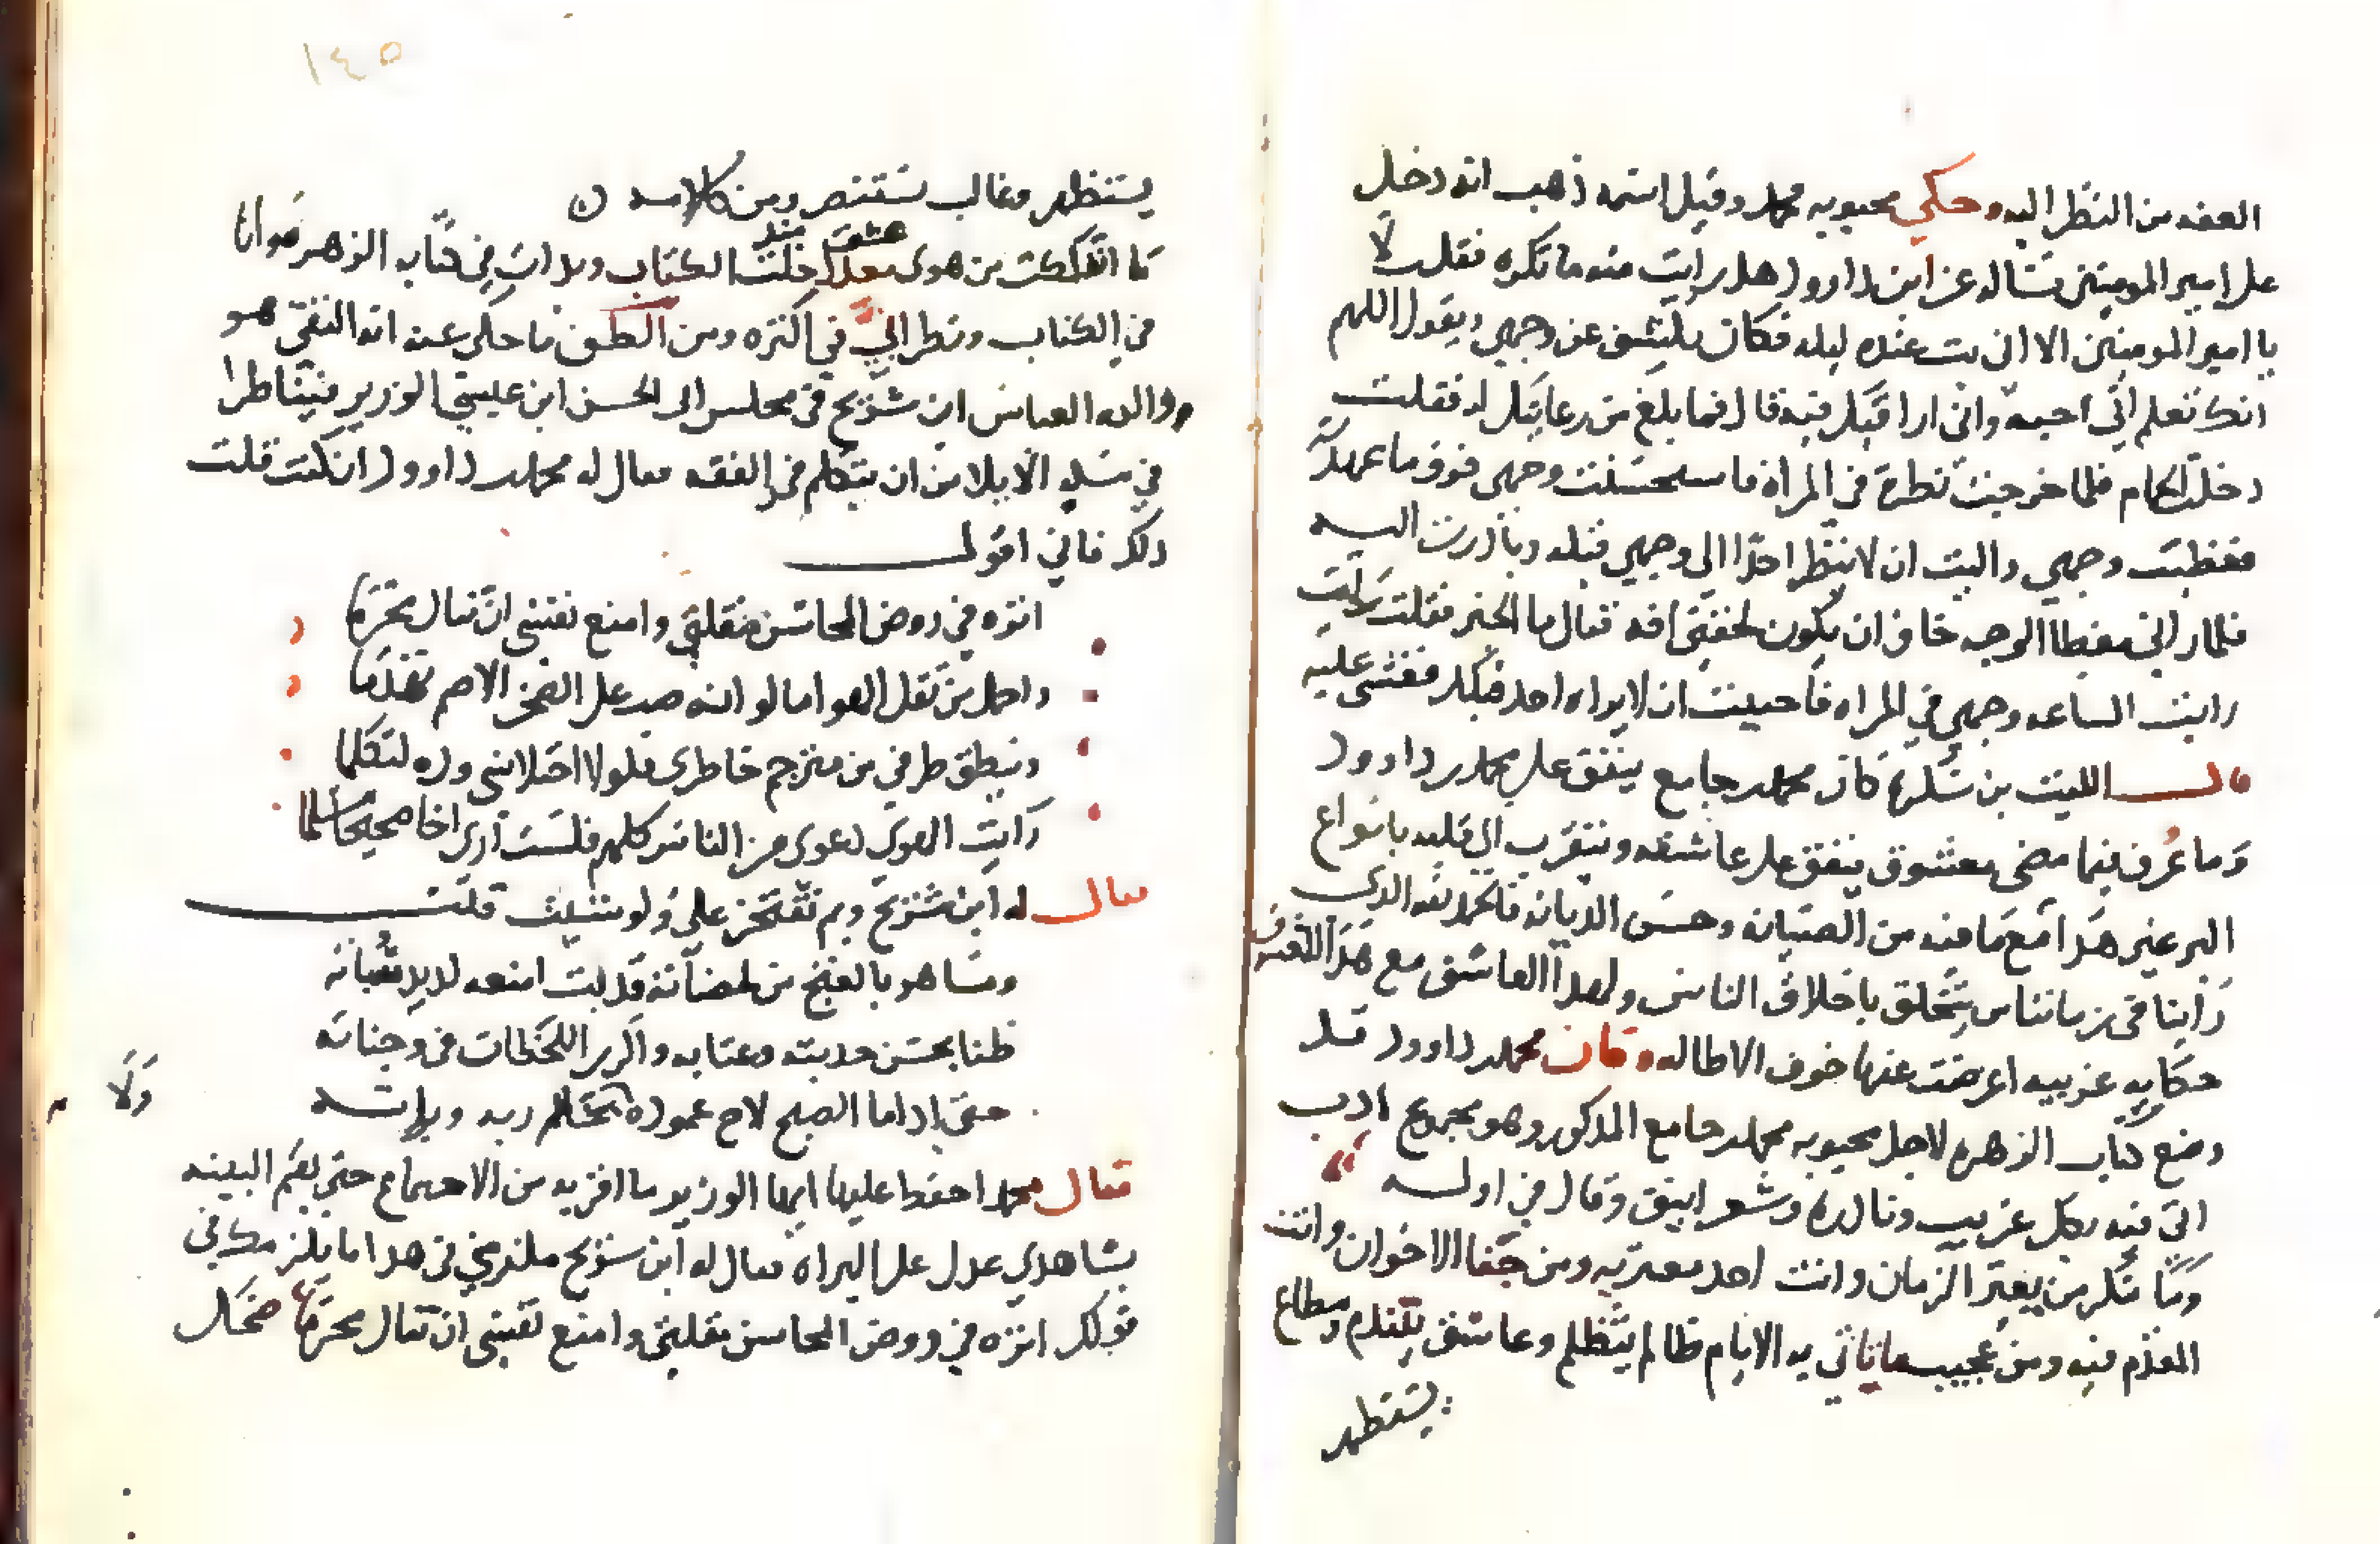 العفه من النظر اليه وحكي محبوبه محمد وقيل اسمه ذهب انه دخل
على امير المومنين فساله عن ابن داوود هل رايت منه ما تكره فقلت لا
يا امير المومنين الا اني بت عنده ليله فكان يكشف عن وجهي ويقول اللهم
انك تعلم اني احبه واني اراقبك فيه قال فما بلغ من رعايتك له فقلت
دخلت الحمام فلما خرجت نظرت في المراه فاستحسنت وجهي فوق ما عهدته
فغطيت وجهي واليت ان لا ينظر احدا الى وجهي قبله وبادرت اليه
فلما راني مغطا الوجه خاف ان يكون لحقتني افه فقال ما الخبر فقلت رايت
رايت الساعه وجهي في المراه فاحببت ان لا يراه احد قبلك فغشى عليه
قال الليث بن بكره كان محمد بن جامع ينفق على محمد بن داوود
وما عرف فيما مضى معشوق ينفق على عاشقه ويتقرب الي قلبه بانواع
البر غير هذا مع ما فيه من الصيانه وحسن الديانه فالحمد لله الذي
راينا في زماننا من يتخلق باخلاق الناس ولهذا العاشق مع هذا المعشوق
حكايه غريبه اعرضت عنها خوف الاطاله وكان محمد بن داوود قد
وضع كتاب الزهره لاجل محبوبه محمد بن جامع المذكور وهو مجموع ادب
اتى فيه بكل غريب ونادره وشعر انيق وقال في اوله
وما تنكر من يغير الزمان وانت احد مغيريه ومن جفا الاخوان وانت
المقدم فيه ومن عجيب ما ياتي به الايام ظالم يتظلم وعاشق يتندم ومطاع
يستظهر
١٤٥
يستظهر وغالب يستنصر ومن كلامه
ما انفككت من هوى منذ دخلت الكتاب وبدات في كتاب الزهره وانا
عشق
في الكتاب ونظر ابي في اكثره ومن الطف ما حكي عنه انه التقى هو
ووالده العباس ابن شريح في مجلس ابي الحسن ابن عيسى الوزير فتناظرا
في مسله الايلا من ان يتكلم في الفقه فقال له محمد بن داوود ان كنت قلت
ذلك فاني اقول
انزه في روض المحاسن مقلتي وامنع نفسي ان تنال محرما
واحمل من ثقل الهوا ما لو انه صب على الصخر الاصم تهدما
وينطق طرفي من مترجم خاطري فلولا اختلاسي وده لتكلما
رايت الهوى دعوى من الناس كلهم فلست ارى اخا صحيحا مسلما
فقال له ابن شريح وبم تفتخر علي ولو شئت قلت
ومساهر بالغنج من لحضاته قد بت امنعه لديد سباته
ظنا بحسن حديثه وعتابه واكرر اللحظات في وجناته
حتى اذا ما الصبح لاح عموده بخاتم ربه وبراته
ولا
فقال محمد احفظ عليها ايها الوزير ما اقر به من الاجتماع حتى يقيم البينه
بشاهدي عدل على البراه فقال له ابن سريح يلزمني في هذا ما يلزمك في
قولك انزه في روض المحاسن مقلتي وامنع نفسي ان تنال محرما فضحك